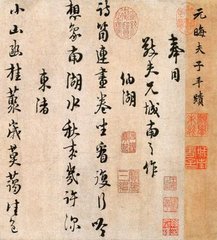 元晦夫子手蹟
奉同
敬夫兄城南之作
納湖
詩筒連畫卷坐看復行吟
想象南湖水秋來幾許深
東渚
小山幽桂叢歲莫藹佳色